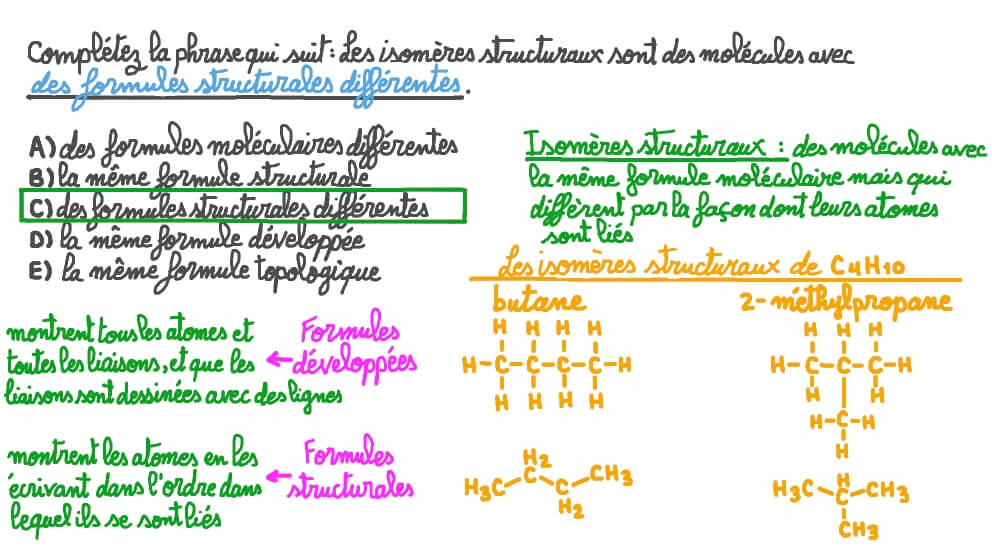 Complétez la phrase qui suit : Les isomères structuraux sont des molécules avec
des formules structurales différentes.
A) des formules moléculaires différentes
B) la même formule structurale
C) des formules structurales différentes
D) la même formule développée
E) la même formule topologique
Isomères structuraux : des molécules avec
la même formule moléculaire mais qui
diffèrent par la façon dont leurs atomes
sont liés
Les isomères structuraux de C4H10
butane
2-méthylpropane
montrent tous les atomes et
toutes les liaisons, et que les
liaisons sont dessinées avec des lignes
← Formules
développées
H H H H
H-C-C-C-C-H
H H H H
H H H
H-C-C-C-H
H H
H-C-H
H
montrent les atomes en les
écrivant dans l'ordre dans
lequel ils se sont liés
← Formules
structurales
H2
H3C C C CH3
H2
H
H3C C CH3
CH3